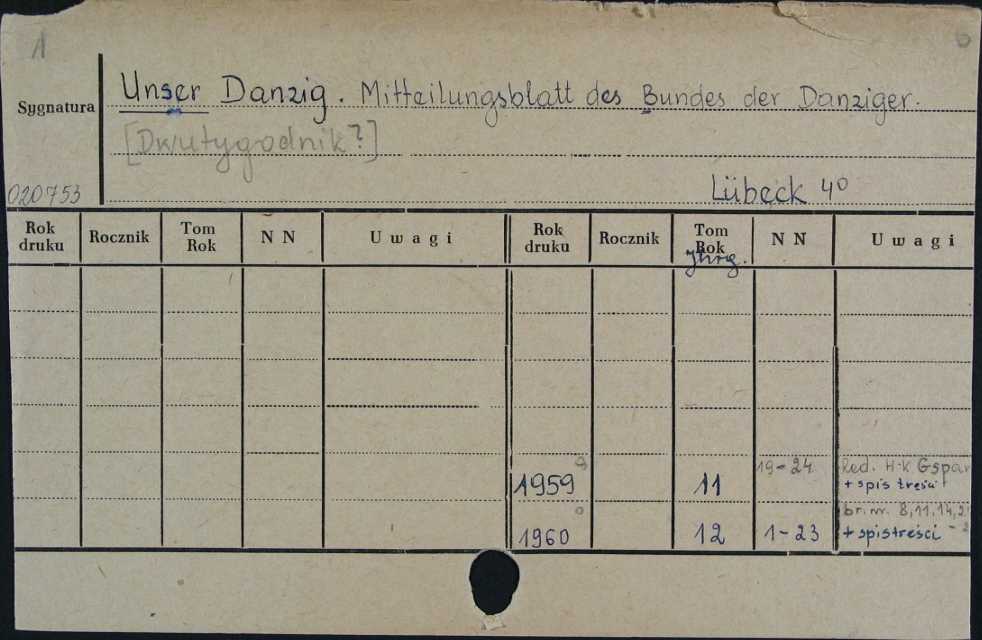 1
6
Unser Danzig. Mitteilungsblatt des Bundes der Danziger.
Sygnatura
[Dwutygodnik?]
020753
Lübeck 4º
Rok druku Rocznik Tom Rok N N Uwagi Rok druku Rocznik Tom Rok N N Uwagi
Jhrg.
19-24 Red. H-K Gspar
1959 11 + spis treści
br. nr. 8,11,14,
1960 12 1-23 + spis treści